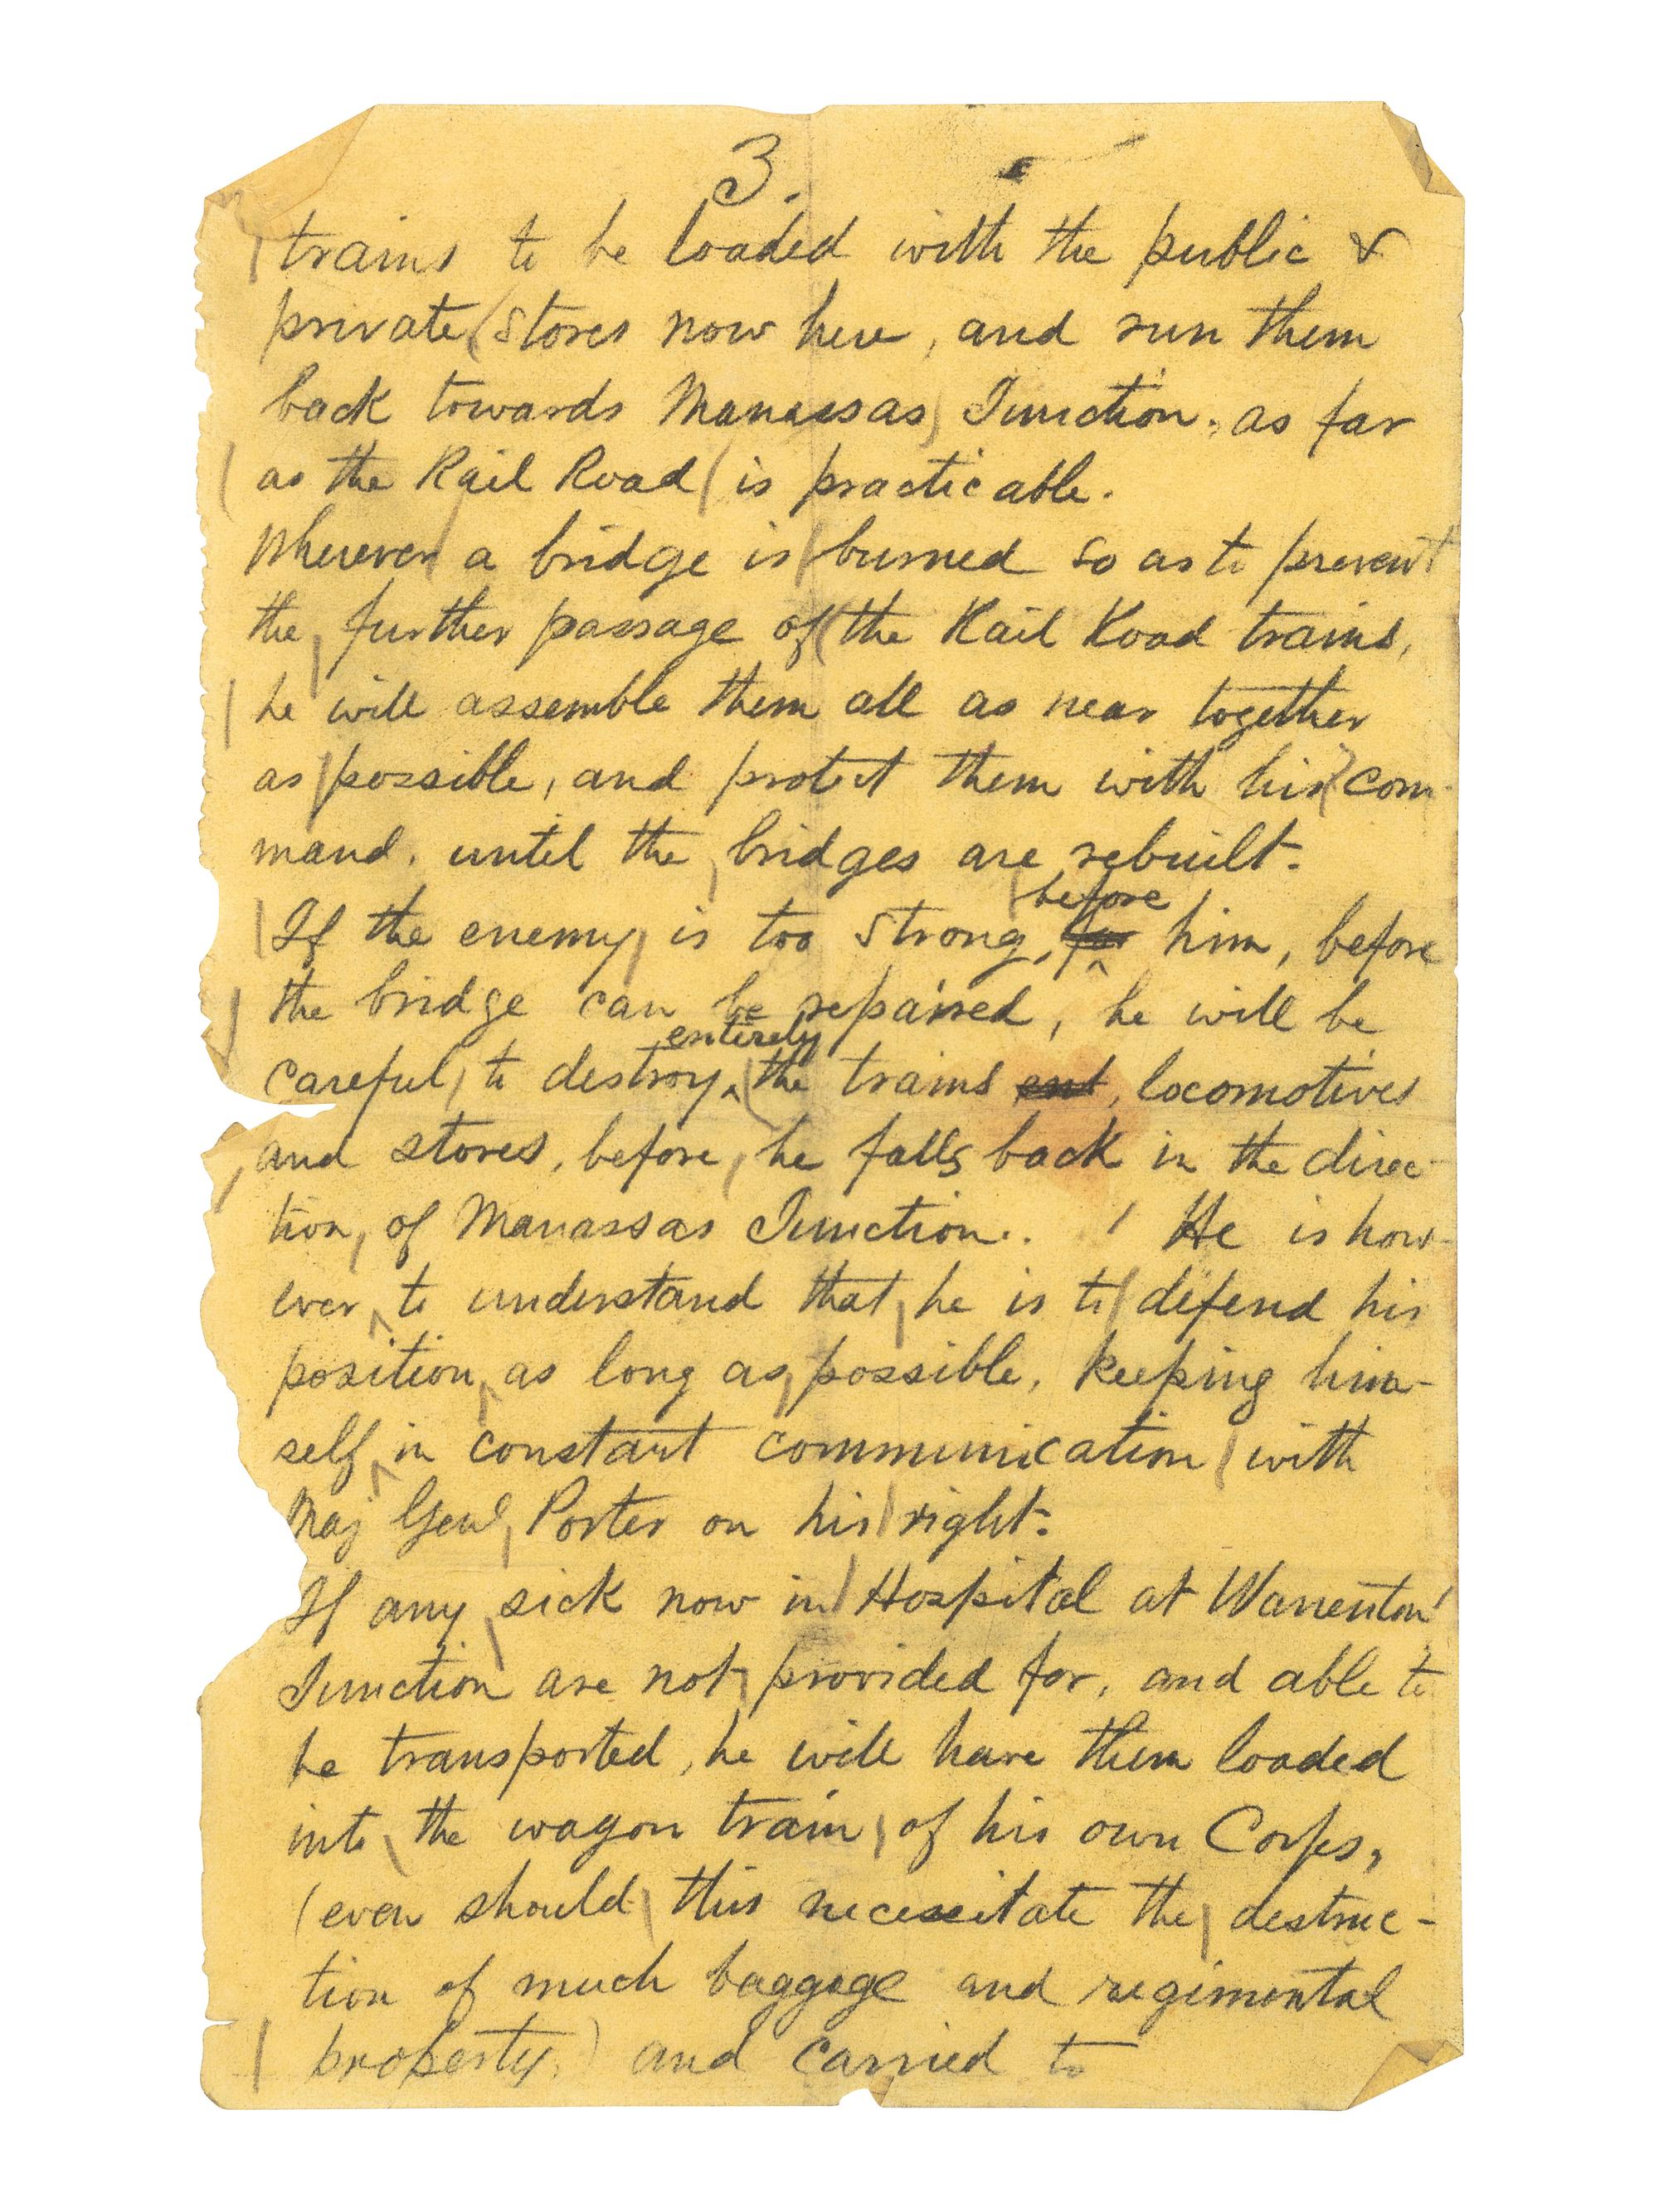 3.
trains to be loaded with the public &
private stores now here, and run them
back towards Manassas Junction, as far
as the Rail Road is practicable.
Wherever a bridge is burned so as to prevent
the further passage of the Rail Road trains,
he will assemble them all as near together
as possible, and protect them with his com-
mand, until the bridges are rebuilt.
before
If the enemy is too strong, for him, before
the bridge can be repaired, he will be
entirely
careful to destroy ^ the trains, locomotives
and stores, before he falls back in the direc-
tion, of Manassas Junction. He is how-
ever to understand that he is to defend his
position as long as possible, keeping him-
self in constant communication with
Maj Genl Porter on his right.
If any sick now in Hospital at Warrenton
Junction are not provided for, and able to
be transported, he will have them loaded
into the wagon train of his own Corps,
(even should this necessitate the destruc-
tion of much baggage and regimental
property,) and carried to